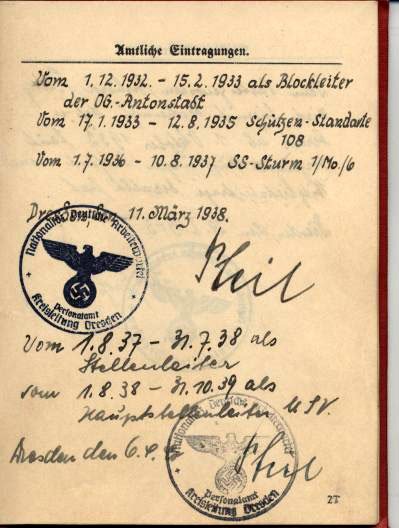 Amtliche Eintragungen.
Vom 1.12.1932. - 15.2.1933 als Blockleiter
der OG.-Antonstadt
Vom 17.1.1933 - 12.8.1935 Schützen-Standarte
108
Vom 1.7.1936 - 10.8.1937 SS-Sturm 1/Mo./6
11. März 1938.
Nationalsoz. Deutsche Arbeiterpartei
Personalamt
Kreisleitung Dresden
Vom 1.8.37 - 31.7.38 als
Stellenleiter
vom 1.8.38 - 31.10.39 als
Hauptstellenleiter NSV.
Dresden den 6.
Deutsche Arbeiterpartei
Personalamt
Kreisleitung Dresden
2T